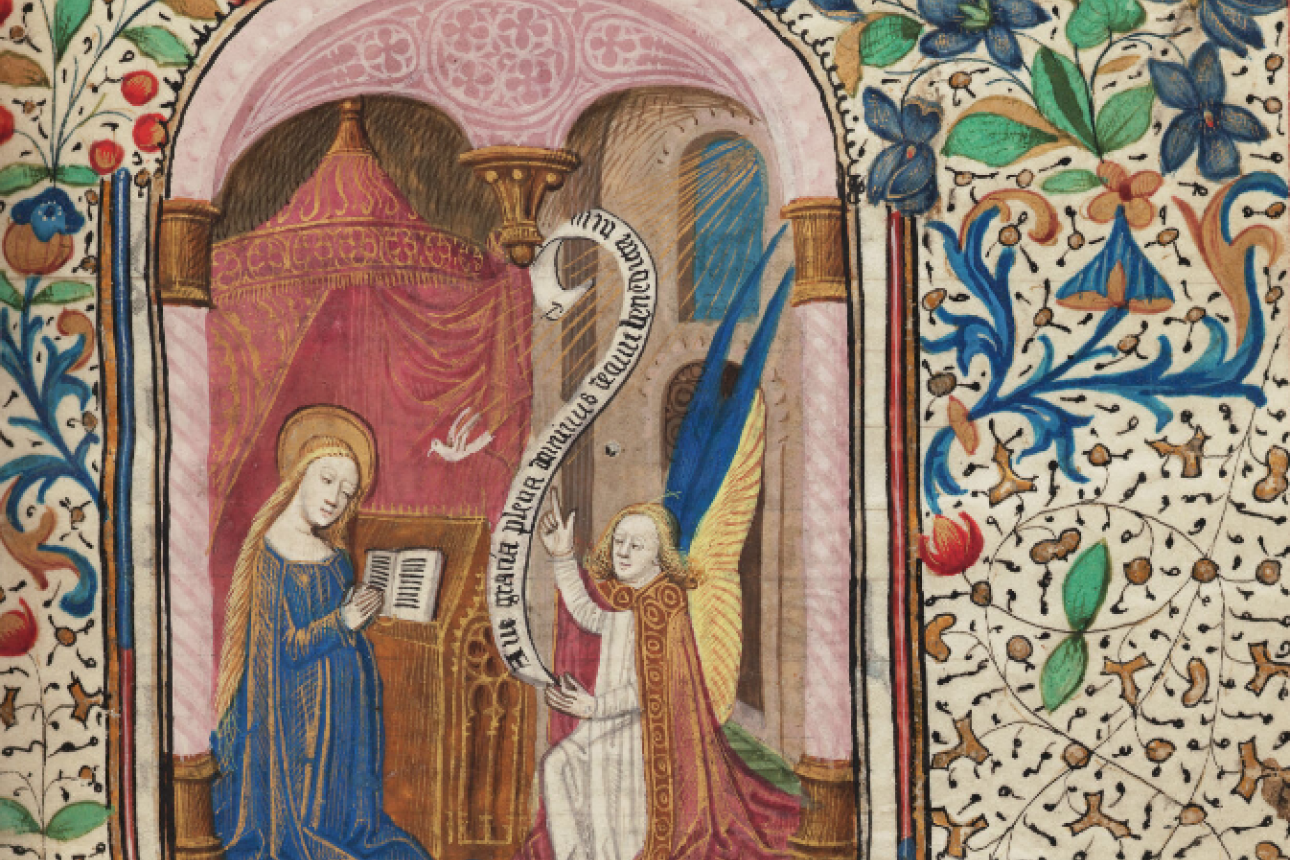 Aue gracia plena dominus tecum benedicta tu